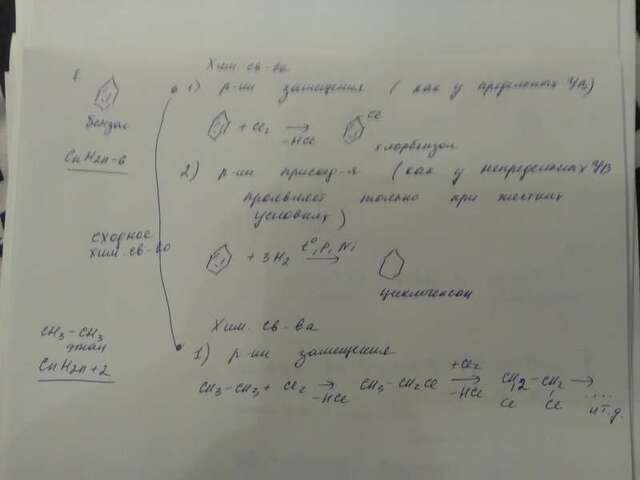 Хим. св-ва
1) р-ии замещения (как у предельных УВ)
бензол
+ Cl2 → -HCl
Cl
хлорбензол
CnH2n-6
2) р-ии присоед-я (как у непредельных УВ
проявляет только при жестких
условиях)
сходное
хим. св-во
+ 3H2 → t°, P, Ni
циклогексан
Хим. св-ва
CH3-CH3
этан
1) р-ии замещения
CnH2n+2
CH3-CH3 + Cl2 → -HCl CH3-CH2Cl +Cl2 → -HCl CH2-CH2 → ....
Cl Cl и т.д.